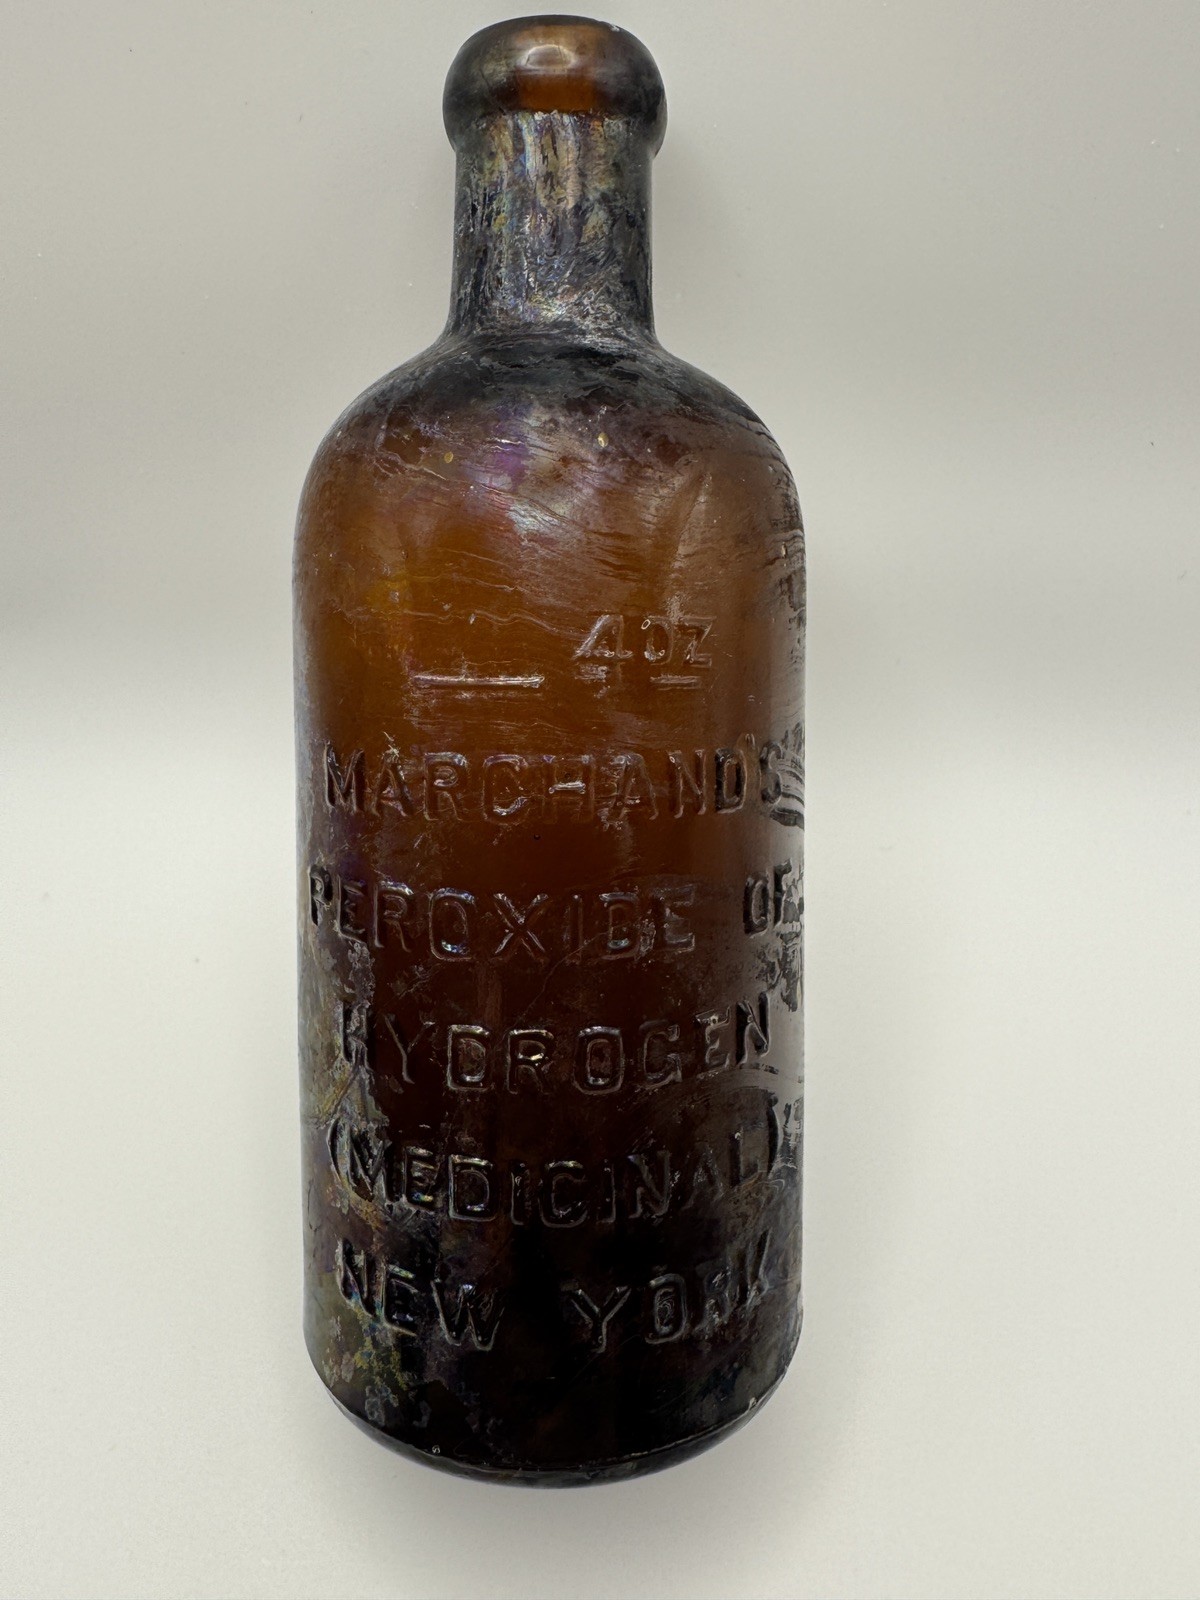 4 OZ
MARCHAND'S
PEROXIDE OF
HYDROGEN
(MEDICINAL)
NEW YORK